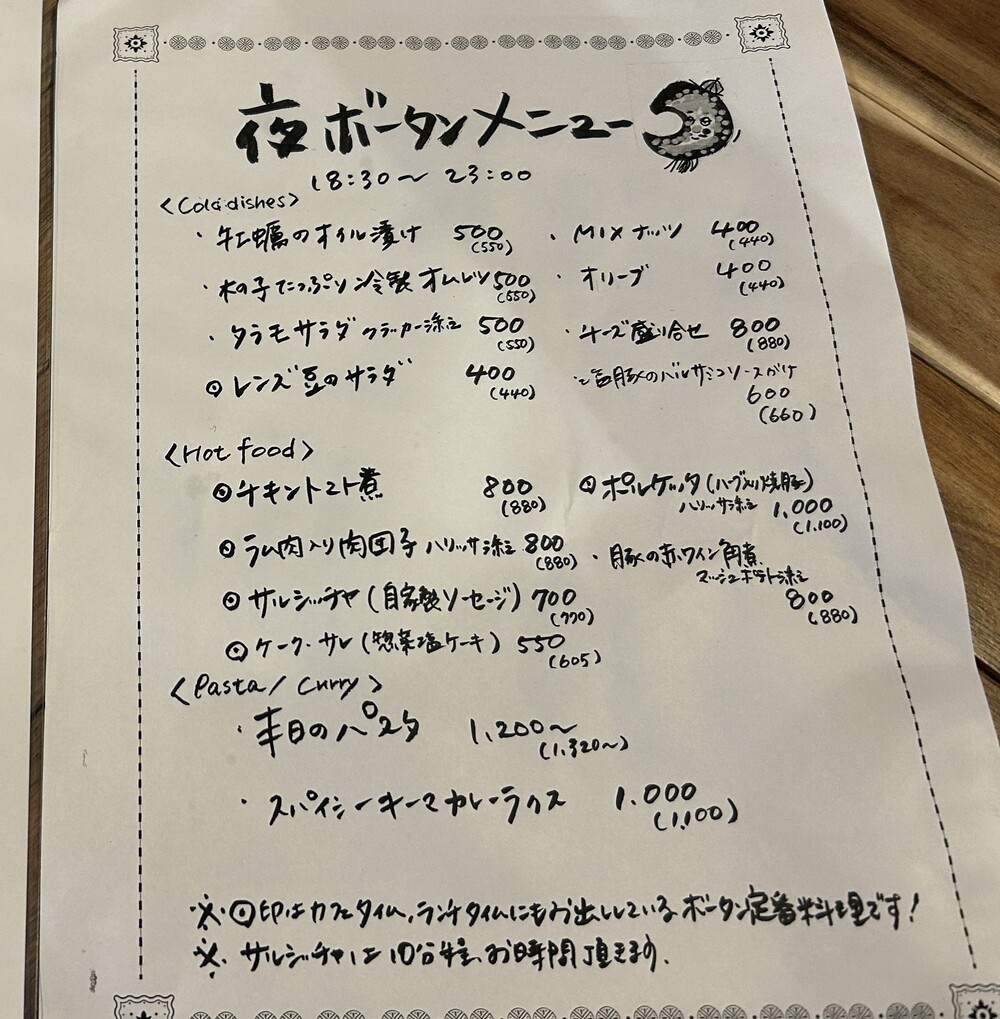 夜ボータンメニュー
18:30〜 23:00
<Cold dishes>
・牡蠣のオイル漬け 500
(550)
・木の子たっぷり冷製オムレツ 500
(550)
・タラモサラダ クラッカー添え 500
(550)
◎レンズ豆のサラダ 400
(440)
・MIXナッツ 400
(440)
・オリーブ 400
(440)
・チーズ盛り合せ 800
(880)
豚のバルサミコソースがけ
600
(660)
<Hot food>
◎チキントマト煮 800
(880)
◎ラム肉入り肉団子 ハリッサ添え 800
(880)
◎サルシッチャ(自家製ソーセージ) 700
(770)
◎ケーク・サレ(惣菜塩ケーキ) 550
(605)
◎ポルケッタ(ハーブ入り焼豚)
ハリッサ添え 1,000
(1,100)
・豚の赤ワイン角煮
マッシュポテト添え
800
(880)
<Pasta/ Curry>
・本日のパスタ 1,200〜
(1,320〜)
・スパイシーキーマカレーライス 1,000
(1,100)
※◎印はカフェタイム,ランチタイムにもお出ししているボータン定番料理です!
※サルシッチャは10分程、お時間頂きます。